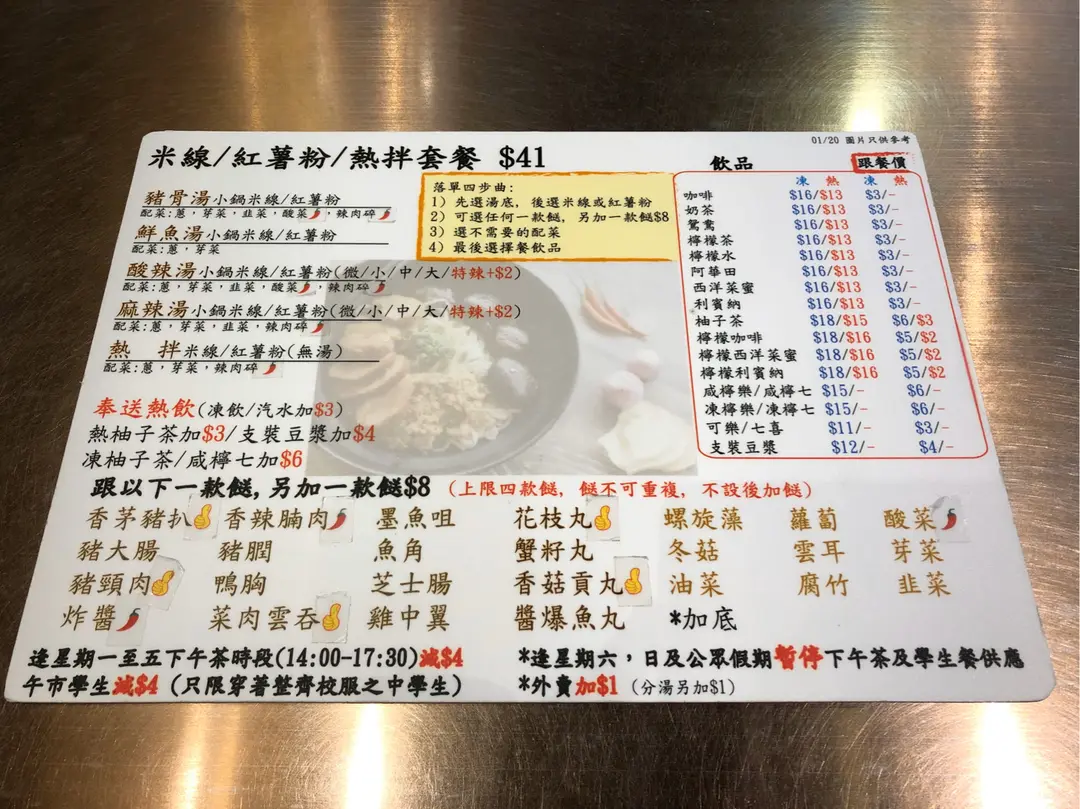 01/20 圖片只供參考
米線/紅薯粉/熱拌套餐 $41
豬骨湯小鍋米線/紅薯粉
配菜:蔥,芽菜,韭菜,酸菜,辣肉碎
鮮魚湯小鍋米線/紅薯粉
配菜:蔥,芽菜
酸辣湯小鍋米線/紅薯粉(微/小/中/大/特辣+$2)
配菜:蔥,芽菜,韭菜,酸菜,辣肉碎
麻辣湯小鍋米線/紅薯粉(微/小/中/大/特辣+$2)
配菜:蔥,芽菜,韭菜,辣肉碎
熱 拌米線/紅薯粉(無湯)
配菜:蔥,芽菜,辣肉碎
落單四步曲:
1) 先選湯底, 後選米線或紅薯粉
2) 可選任何一款餸, 另加一款餸$8
3) 選不需要的配菜
4) 最後選擇餐飲品
飲品 跟餐價
凍 熱 凍 熱
咖啡 $16/$13 $3/-
奶茶 $16/$13 $3/-
鴛鴦 $16/$13 $3/-
檸檬茶 $16/$13 $3/-
檸檬水 $16/$13 $3/-
阿華田 $16/$13 $3/-
西洋菜蜜 $16/$13 $3/-
利賓納 $16/$13 $3/-
柚子茶 $18/$15 $6/$3
檸檬咖啡 $18/$16 $5/$2
檸檬西洋菜蜜 $18/$16 $5/$2
檸檬利賓納 $18/$16 $5/$2
咸檸樂/咸檸七 $15/- $6/-
凍檸樂/凍檸七 $15/- $6/-
可樂/七喜 $11/- $3/-
支裝豆漿 $12/- $4/-
奉送熱飲(凍飲/汽水加$3)
熱柚子茶加$3/支裝豆漿加$4
凍柚子茶/咸檸七加$6
跟以下一款餸,另加一款餸$8 (上限四款餸, 餸不可重複, 不設後加餸)
香茅豬扒 香辣腩肉 墨魚咀 花枝丸 螺旋藻 蘿蔔 酸菜
豬大腸 豬膶 魚角 蟹籽丸 冬菇 雲耳 芽菜
豬頸肉 鴨胸 芝士腸 香菇貢丸 油菜 腐竹 韭菜
炸醬 菜肉雲吞 雞中翼 醬爆魚丸 *加底
逢星期一至五下午茶時段(14:00-17:30)減$4
午市學生減$4 (只限穿著整齊校服之中學生)
*逢星期六,日及公眾假期暫停下午茶及學生餐供應
*外賣加$1 (分湯另加$1)